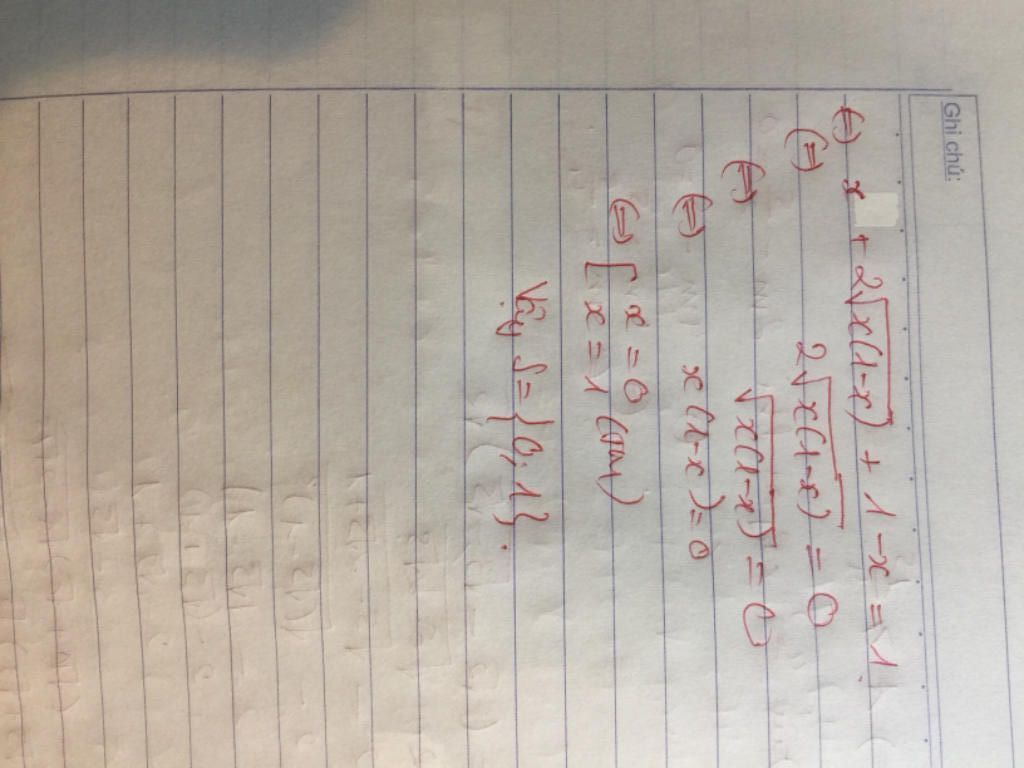 Ghi chú:
⇔ x + 2√x(1-x) + 1-x = 1
⇔ 2√x(1-x) = 0
⇔ √x(1-x) = 0
⇔ x(1-x) = 0
⇔ [ x = 0
x = 1 (TM)
Vậy S = {0, 1}.